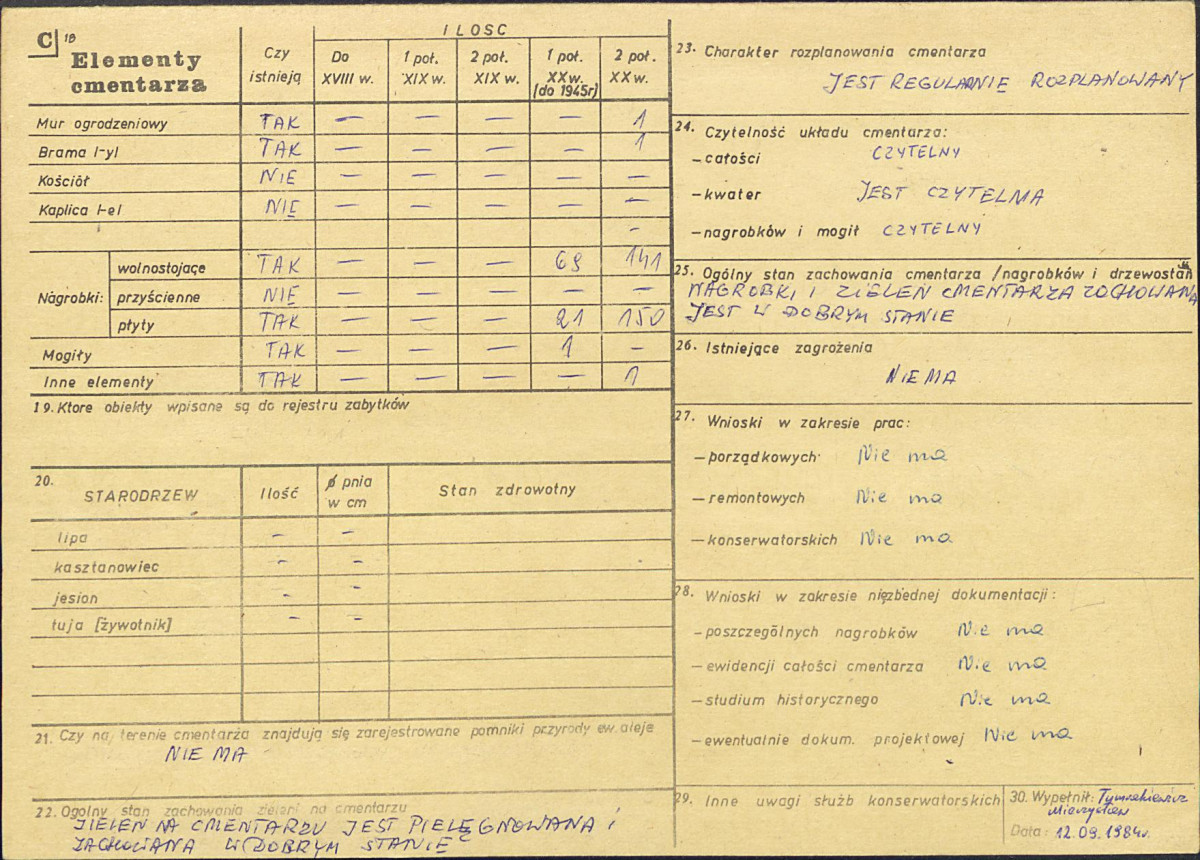 C 18
Elementy cmentarza
Czy istnieją
ILOSC
Do XVIII w.
1 poł. XIX w.
2 poł. XIX w.
1 poł. XX w. (do 1945r)
2 poł. XX w.
Mur ogrodzeniowy TAK — — — — 1
Brama /-y/ TAK — — — — 1
Kościół NIE — — — — —
Kaplica /-e/ NIE — — — — —
-
Nagrobki:
wolnostojące TAK — — — 69 141
przyścienne NIE — — — — —
płyty TAK — — — 21 150
Mogiły TAK — — — 1 —
Inne elementy TAK — — — — 1
19. Ktore obiekty wpisane są do rejestru zabytków
20. STARODRZEW Ilość ø pnia w cm Stan zdrowotny
lipa — —
kasztanowiec - -
jesion - -
tuja [żywotnik] - -
21. Czy na terenie cmentarza znajdują się zarejestrowane pomniki przyrody ew. aleje
NIE MA
22. Ogolny stan zachowania zieleni na cmentarzu
ZIELEŃ NA CMENTARZU JEST PIELĘGNOWANA i
ZACHOWANA W DOBRYM STANIE
23. Charakter rozplanowania cmentarza
JEST REGULARNIE ROZPLANOWANY
24. Czytelność układu cmentarza:
—całości CZYTELNY
—kwater JEST CZYTELMA
—nagrobków i mogił CZYTELNY
25. Ogólny stan zachowania cmentarza /nagrobków i drzewostan
NAGROBKI I ZIELEŃ CMENTARZA ZOCHOWANA
JEST W DOBRYM STANIE
26. Istniejące zagrożenia
NIE MA
27. Wnioski w zakresie prac:
—porządkowych Nie ma
—remontowych Nie ma
—konserwatorskich Nie ma
28. Wnioski w zakresie niezbędnej dokumentacji:
—poszczególnych nagrobków Nie ma
—ewidencji całości cmentarza Nie ma
—studium historycznego Nie ma
—ewentualnie dokum. projektowej Nie ma
29. Inne uwagi służb konserwatorskich
30. Wypełnił:
Data: 12.09.1984r.